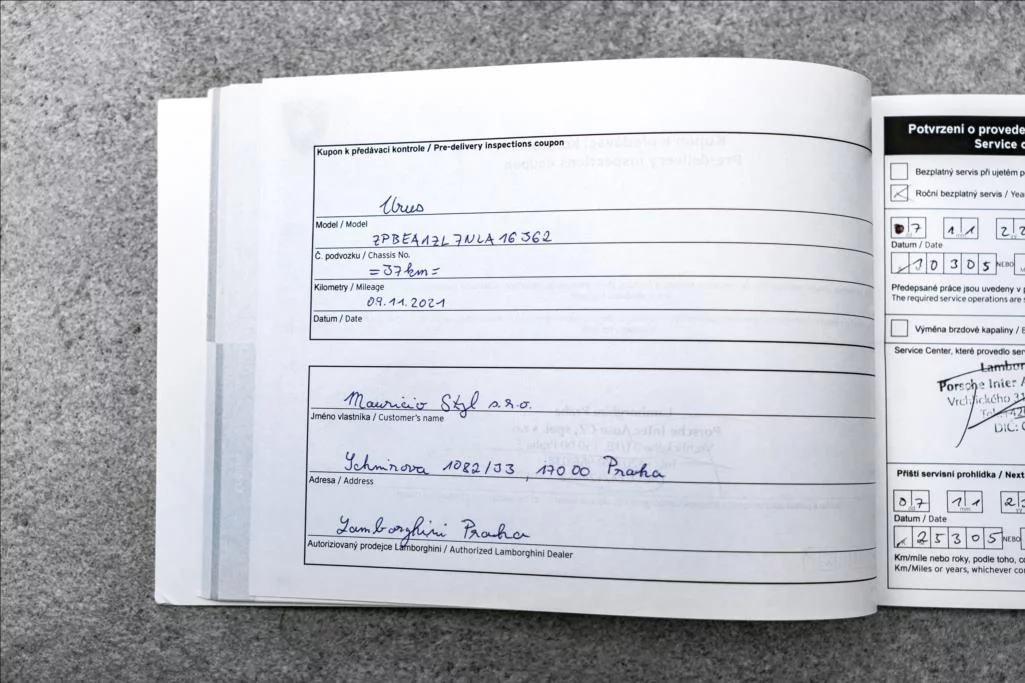 Kupon k předávací kontrole / Pre-delivery inspections coupon
Urus
Model / Model
ZPBEA1ZL7NLA16362
Č. podvozku / Chassis No.
=37km=
Kilometry / Mileage
09.11.2021
Datum / Date
Mauricio Styl s.r.o.
Jméno vlastníka / Customer's name
1082/33, 170 00 Praha
Adresa / Address
Lamborghini Praha
Autoriziovaný prodejce Lamborghini / Authorized Lamborghini Dealer
Potvrzení o provede
Service
Bezplatný servis při ujetém
Roční bezplatný servis / Yea
07 11 22
Datum / Date
10305 NEBO
Předepsané práce jsou uvedeny v
The required service operations are
Výměna brzdové kapaliny /
Service Center, které provedlo ser
Lambor
Porsche Inter
DIČ:
Příští servisní prohlídka / Next
07 11
Datum / Date
25305 NEBO
Km/míle nebo roky, podle toho,
Km/Miles or years, whichever